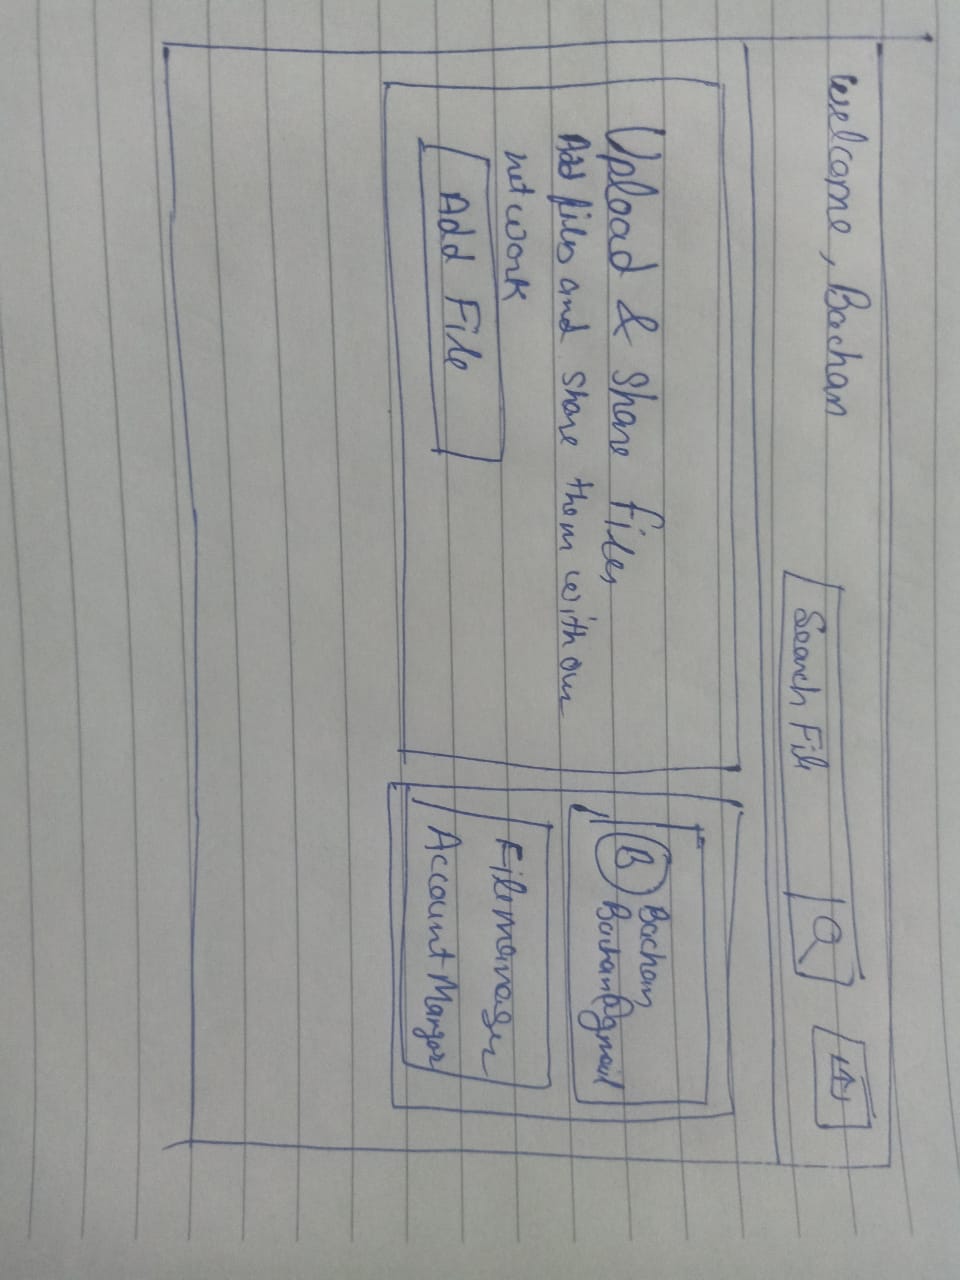 Welcome, Bachan
Search File
Upload & Share Files
Add files and share them with our
network
Add File
B
Bachan
Bachan@gmail
File manager
Account Manger